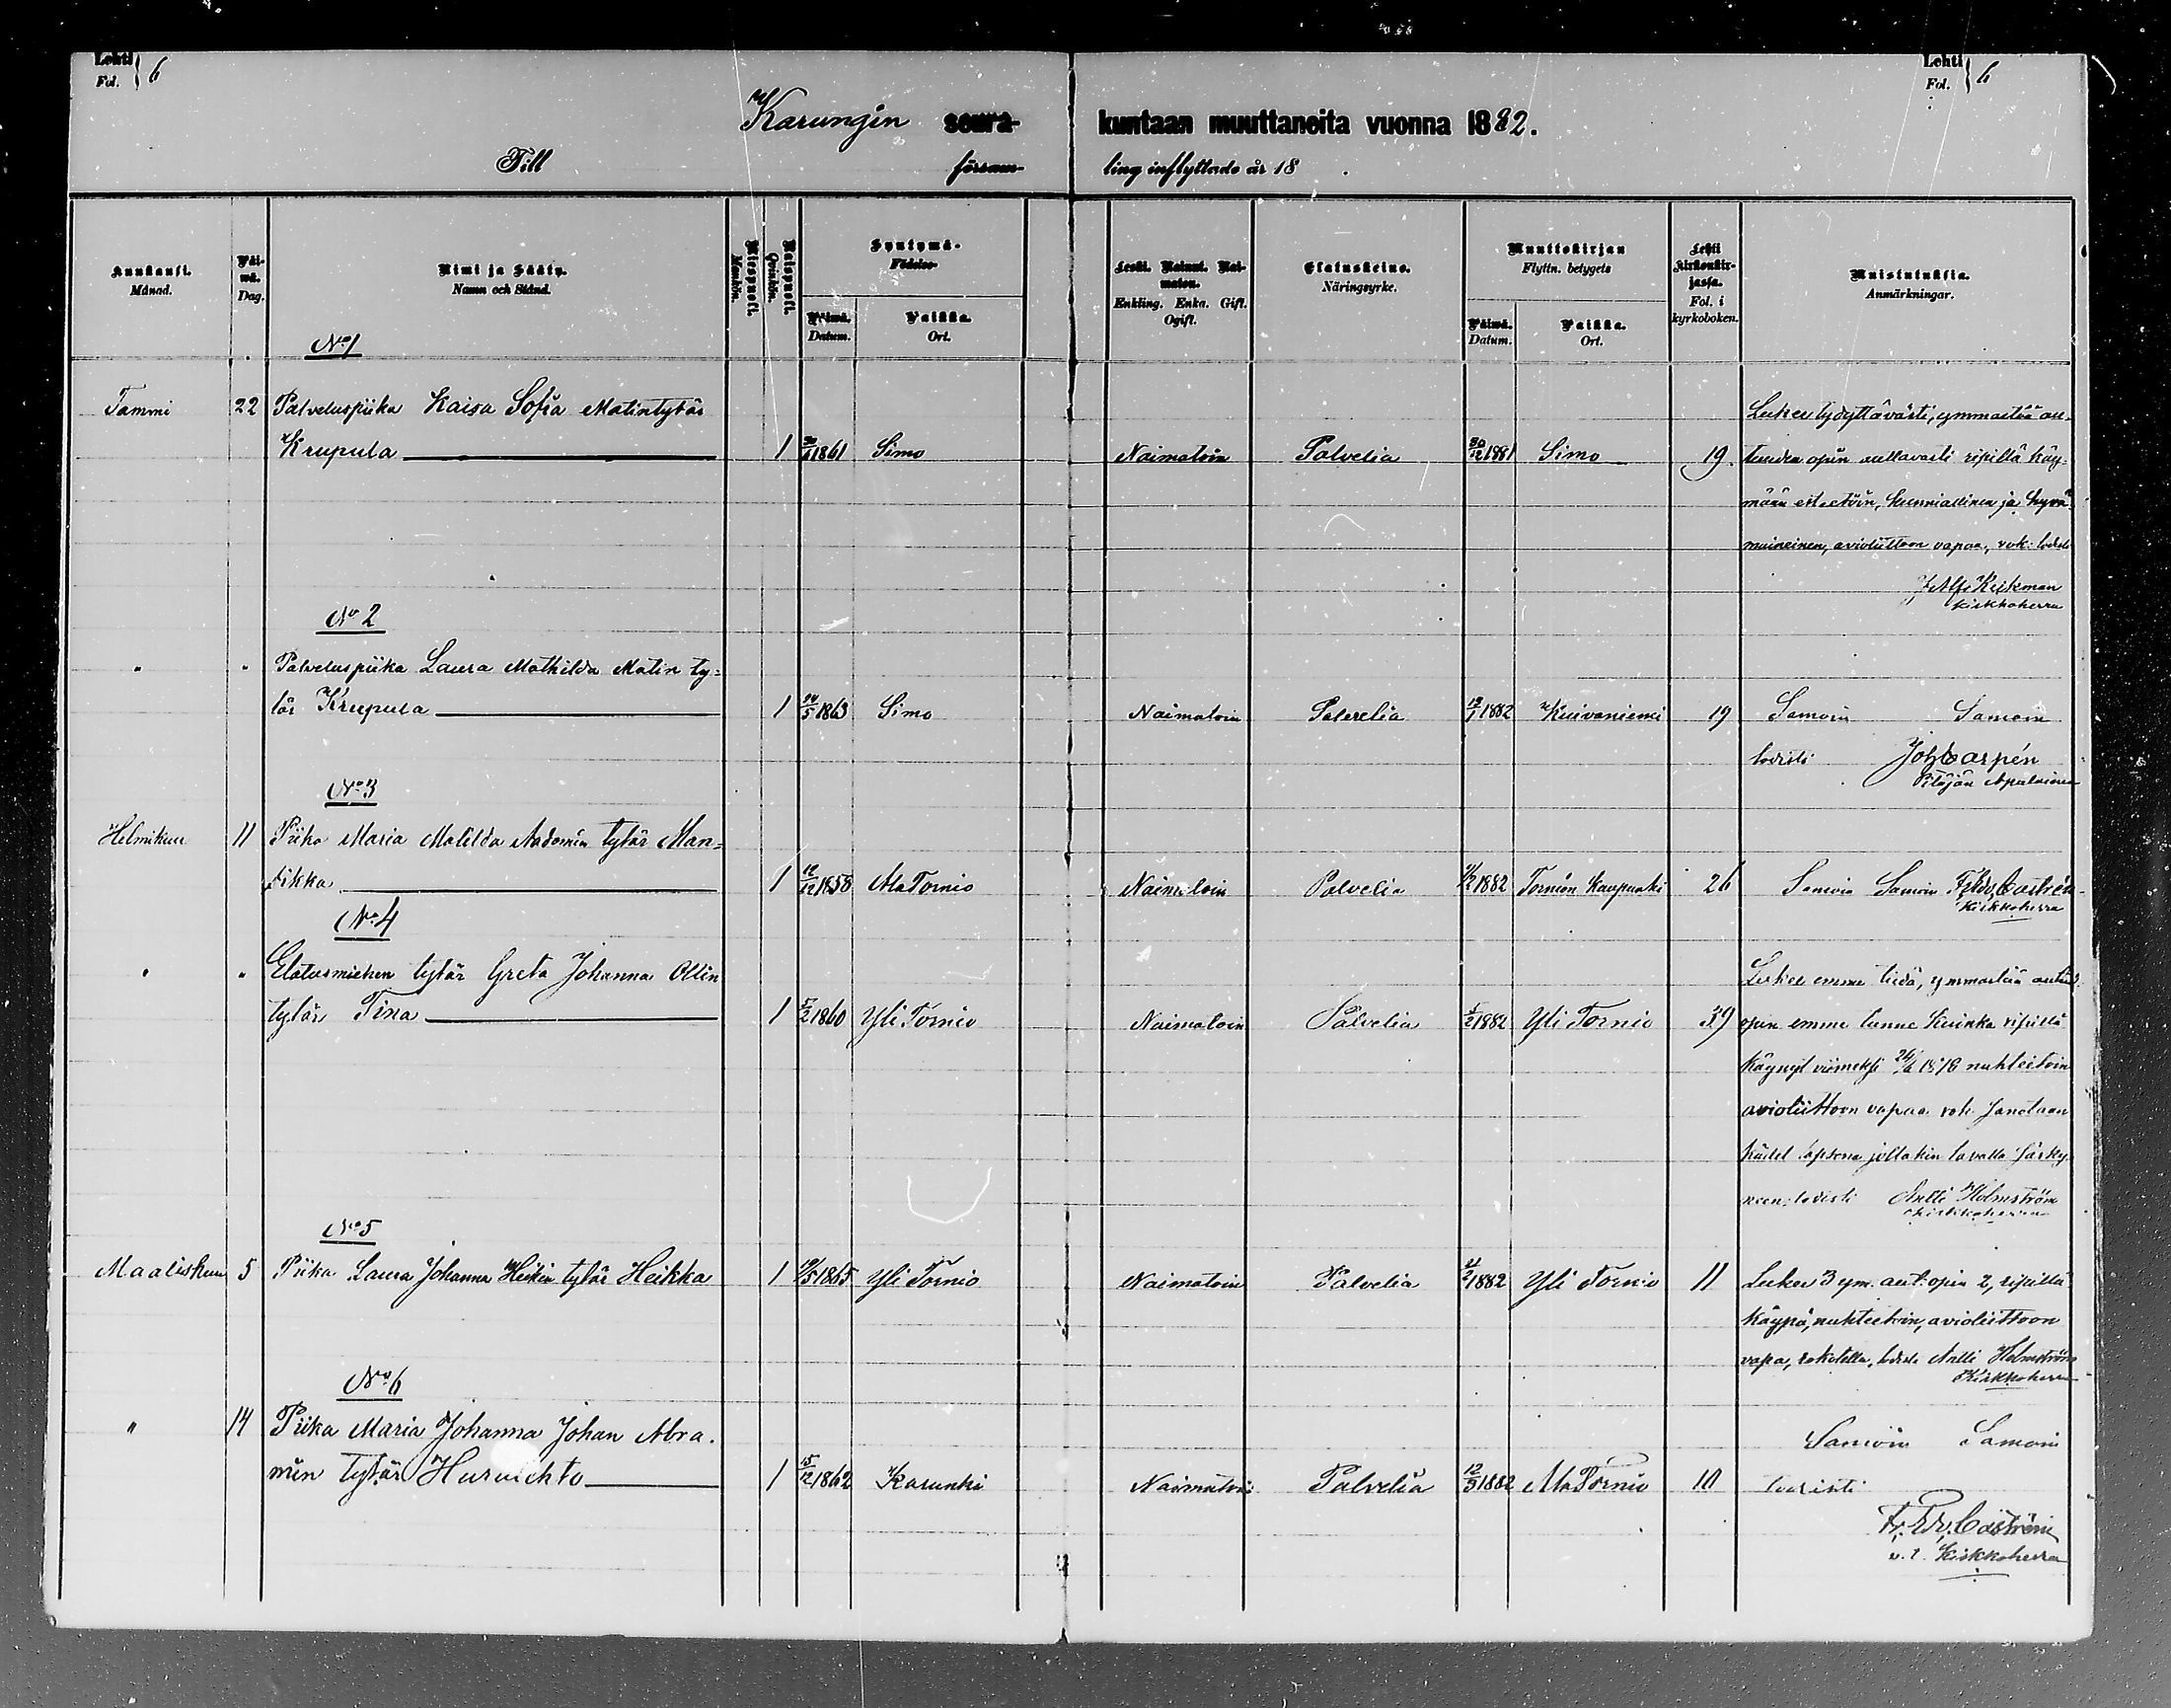 Lehti Fol. 6
Lehti Fol. 6
Karungin seura- kuntaan muuttaneita vuonna 1882.
Till försam- ling inflyttade år 18 .
Kuukausi. Månad.
Päivä. Dag.
Nimi ja Sääty. Namn och Stånd.
Miespuoli. Mankön.
Vaispuoli. Qvinkön.
Syntymä- Födelse-
Päivä. Datum.
Paikka. Ort.
Leski. Nainut. Naimaton. Enkling. Enka. Gift. Ogift.
Elatuskeino. Näringsyrke.
Muuttokirjan Flyttn. betygets
Päivä. Datum.
Paikka. Ort.
Lehti kirkonkirjassa. Fol. i kyrkoboken.
Muistutuksia. Anmärkningar.
No 1
Tammi 22 Palveluspiika Kaisa Sofia Matintytär Lukee tydyttävästi, ymmärtää au-
Krupula 1 1861 Simo Naimatoin Palvelia 30/12 1881 Simo 19. tuuden opin auttavasti ripillä käy-
mään esteetöin, kunniallinen ja hyvä
maineinen, avioliittoon vapaa, rok: todisti
Kirkkoherra
No 2
" " Palveluspiika Laura Mathilda Matin ty-
tär Krupula 1 24/5 1863 Simo Naimatoin Palvelia 18/1 1882 Kuivaniemi 19 Samoin Samoin
todisti Joh Carpén
Pitäjän Apulainen
No 3
Helmikuu 11 Piika Maria Matilda Aadamin tytär Man-
sikka 1 12/12 1858 AlaTornio Naimatoin Palvelia 1882 Tornion Kaupunki 26 Samoin Samoin Castrén
Kirkkoherra
No 4
" " Elatusmiehen tytär Greta Johanna Ollin Lukee emme tiedä, ymmärtää autuud.
tytär Tina 1 5/2 1860 Yli Tornio Naimatoin Palvelia 1/2 1882 Yli Tornio 39 opin emme tunne kuinka ripillä
käynyt viimeksi 1876 nuhteetoin
avioliittoon vapaa rok. sanotaan
lapsena jollakin tavalla särky-
neen, todisti Antti Holmström
Kirkkoherra
No 5
Maaliskuu 5 Piika Laura Johanna Heikin tytär Heikka 1 1865 Yli Tornio Naimatoin Palvelia 1882 Yli Tornio 11 Lukee 3 ym. aut: opin 2, ripillä
käypä, nuhteetoin, avioliittoon
vapa, rokotettu, todisti Antti Holmström
Kirkkoherra
No 6
" 14 Piika Maria Johanna Johan Abra- Samoin Samoin
min tytär 1 15/12 1862 Karunki Naimatoin Palvelia 12/3 1882 AlaTornio 10 todisti
Fr. Edv. Castrén
v. t. Kirkkoherra